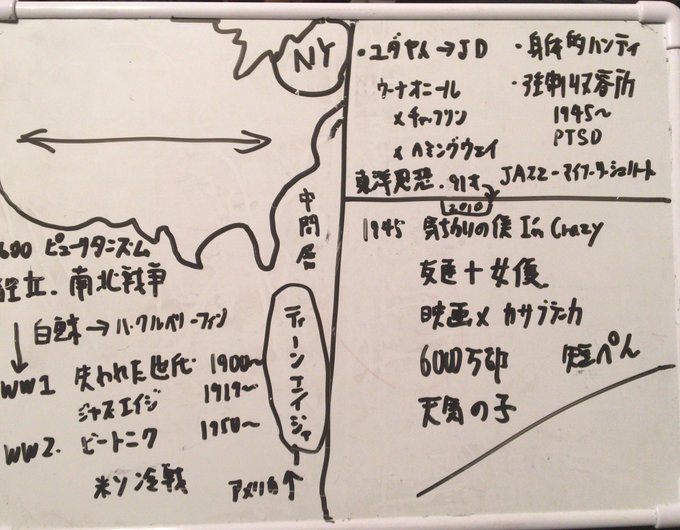 NY
600 ピューリタニズム
独立. 南北戦争
白鯨→ハックルベリーフィン
WW1 失われた世代 1900~
ジャズエイジ 1919~
WW2. ビートニク 1950~
米ソ冷戦
中間層
ティーンエイジャ
アメリカ↑
・ユダヤ人→JD
ウーナオニール
×チャップリン
×ヘミングウェイ
東洋思想・91才
・身体的ハンディ
・強制収容所
1945~
PTSD
JAZZ-マイフーターシュリート
2010
1945 気ちがいの僕 I'm Crazy
友達+女優
映画× カサブランカ
6000万部 短ぺん
天気の子